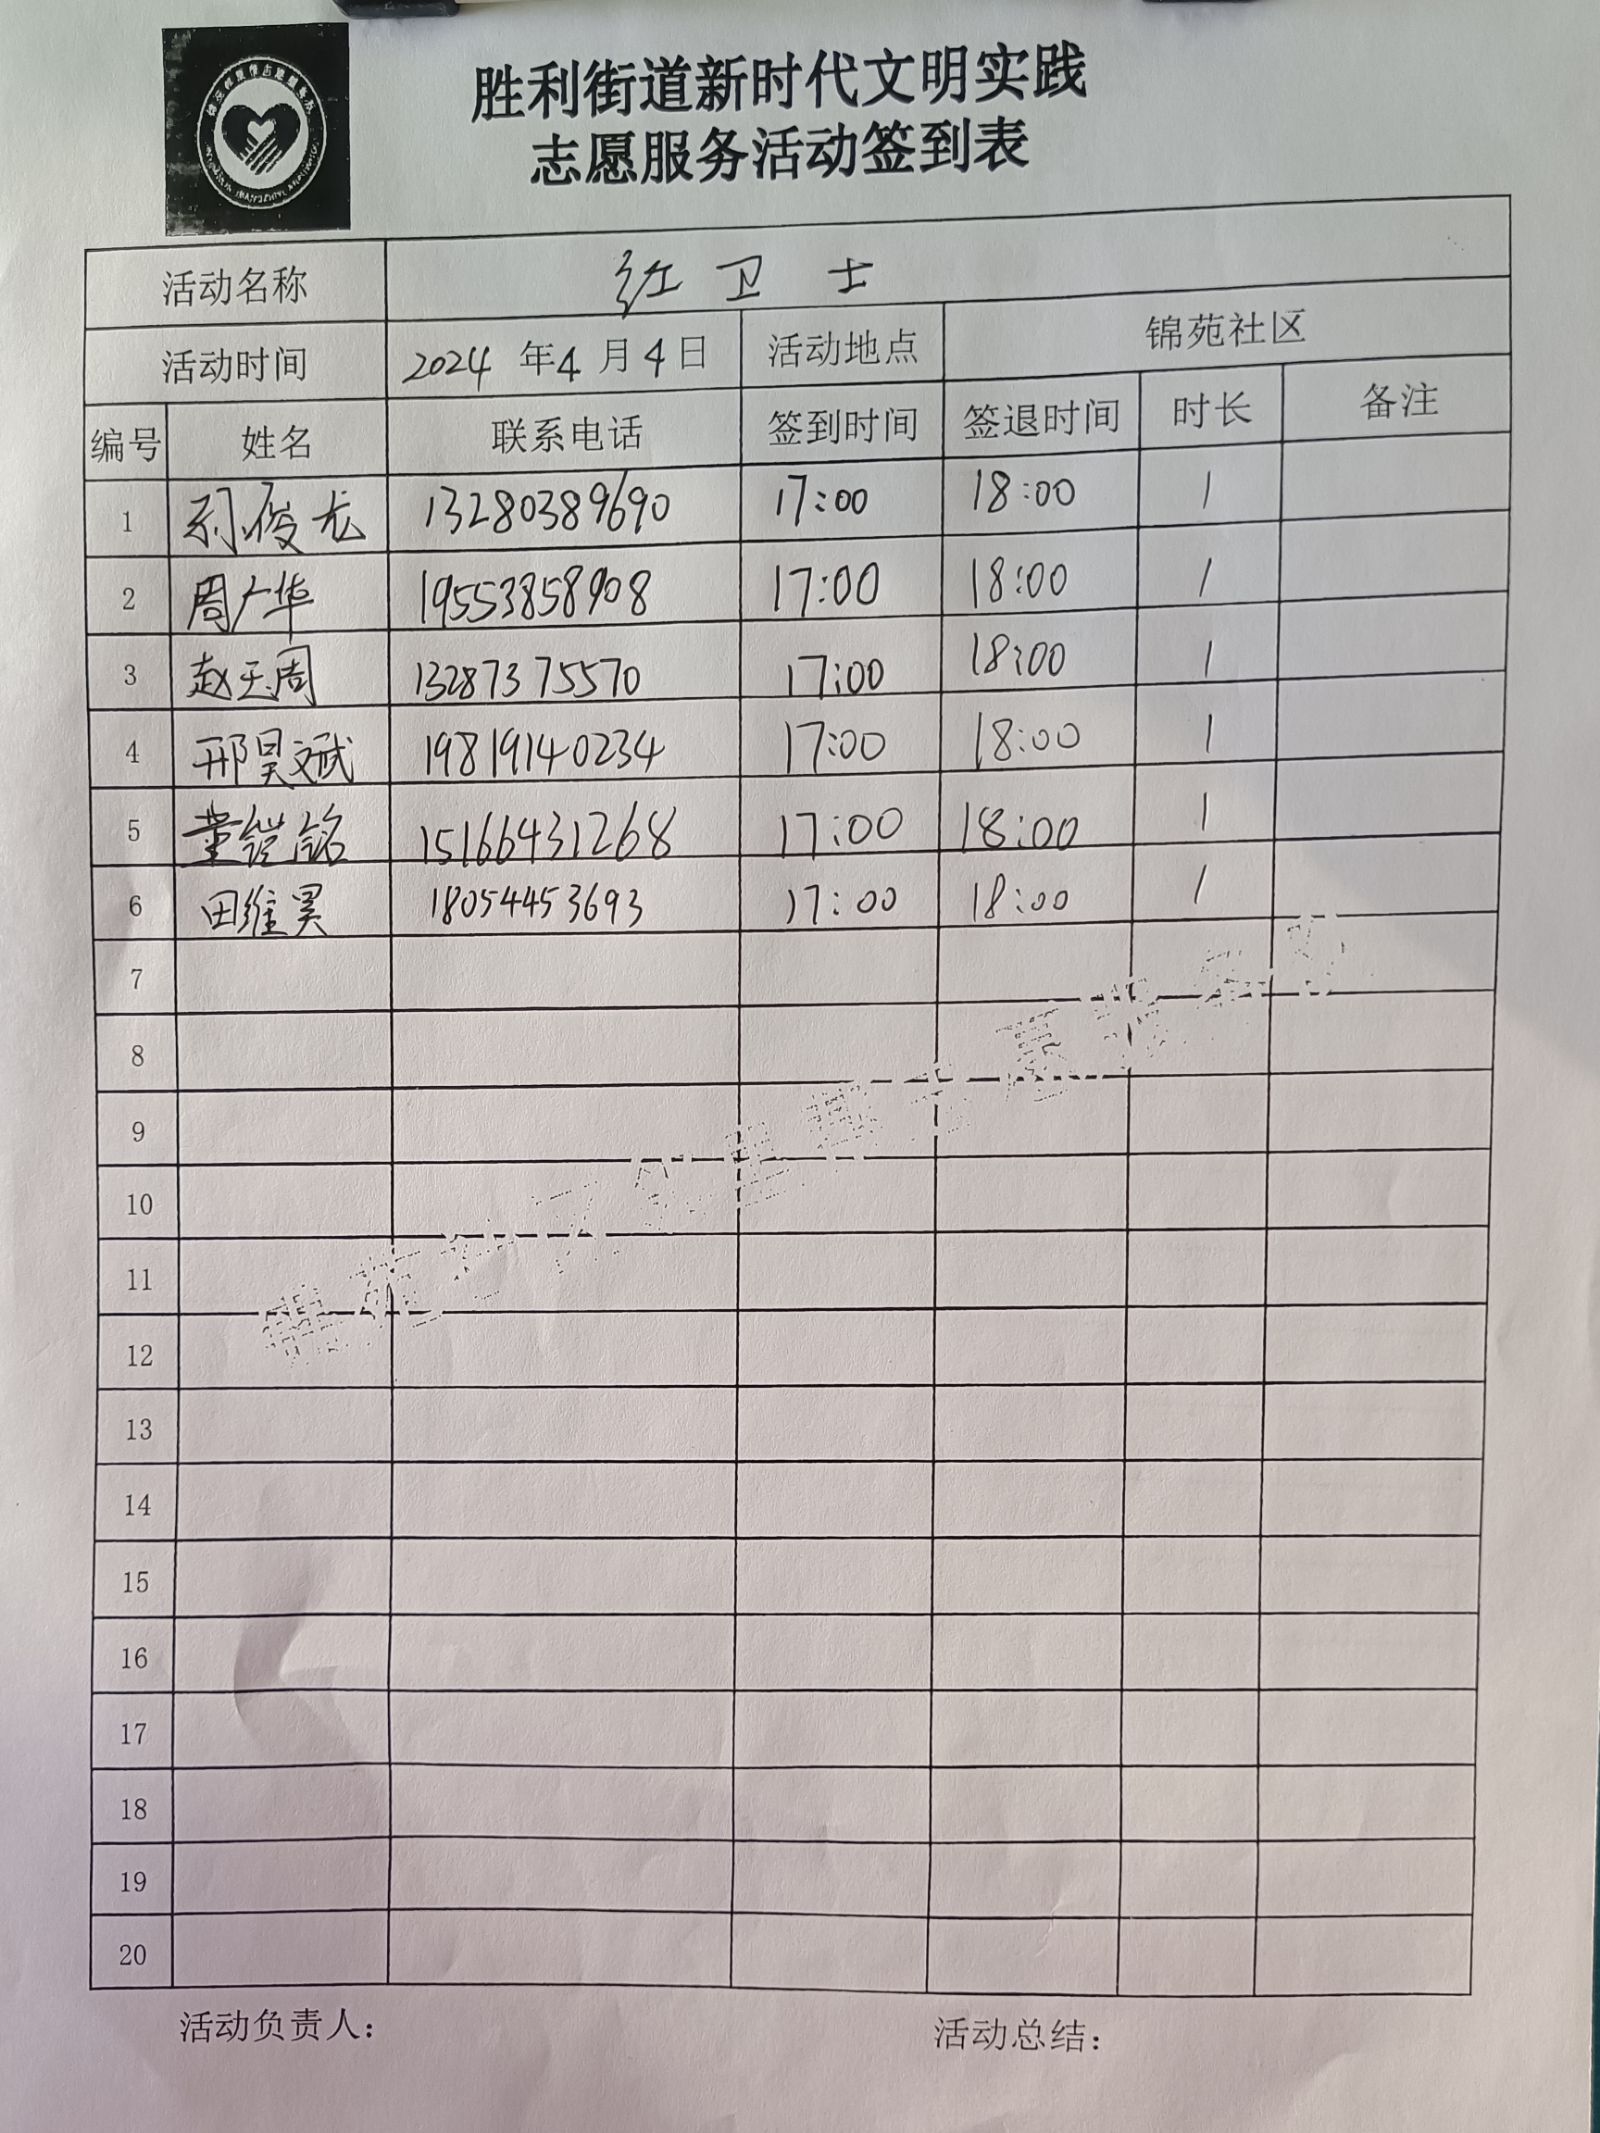 胜利街道新时代文明实践
志愿服务活动签到表
活动名称 红卫士
活动时间 2024年4月4日 活动地点 锦苑社区
编号 姓名 联系电话 签到时间 签退时间 时长 备注
1 刘俊龙 13280389690 17:00 18:00 1
2 周广华 19553858908 17:00 18:00 1
3 赵玉周 13287375570 17:00 18:00 1
4 邢昊斌 19819140234 17:00 18:00 1
5 董铠铭 15166431268 17:00 18:00 1
6 田维昊 18054453693 17:00 18:00 1
7
8
9
10
11
12
13
14
15
16
17
18
19
20
活动负责人： 活动总结：